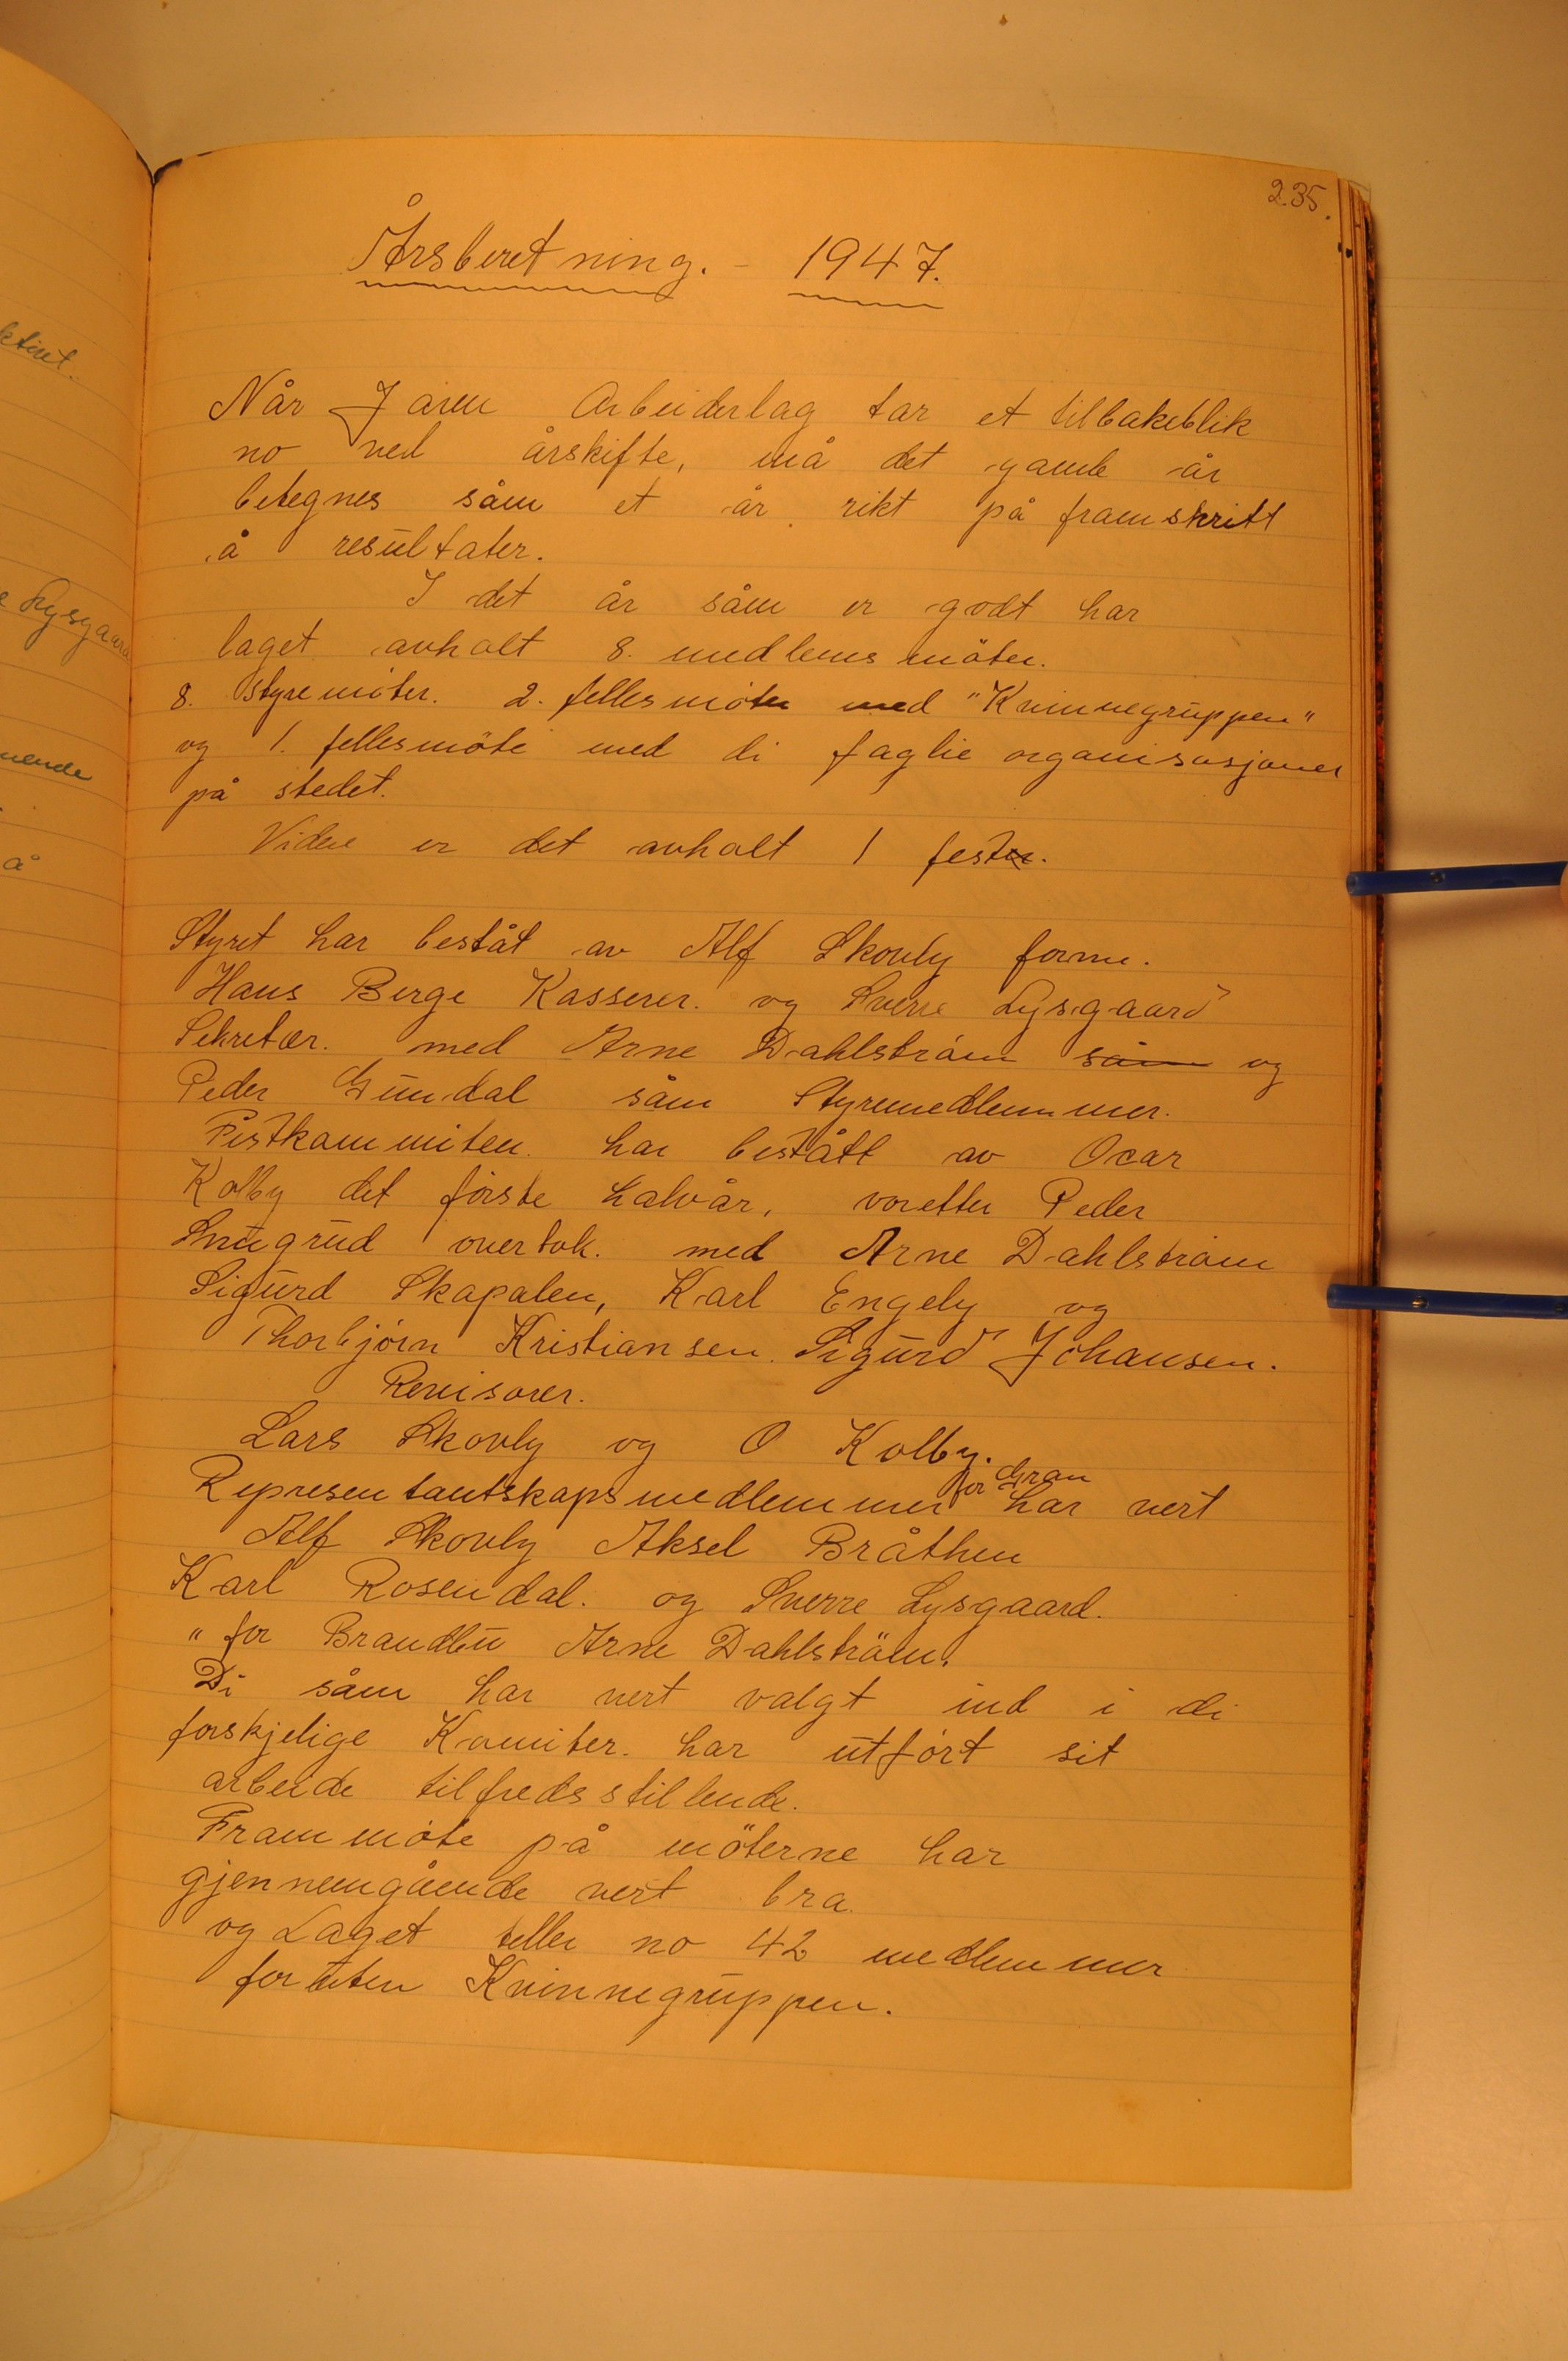 235.
Årsberetning. - 1947.
Når Jaren Arbeiderlag tar et tilbakeblik
no ved årskifte, må det gamle år
betegnes såm et år rikt på framskritt
å resultater.
I det år såm er godt har
laget avholt 8. medlems möter.
8. Styremöter. 2. fellesmöter med "Kvinnegruppen"
og 1. fellesmöte med di faglie organisasjoner
på stedet.
Videre er det avholt 1 fester.
Styret har beståt av Alf Skovly form.
Hans Berge Kasserer. og Sverre Lysgaard
Sekretær. med Arne Dahlström såm og
Peder Gundal såm Styremedlemmer.
Festkammiteen. har bestått av Ocar
Kolby det förste halvår, voretter Peder
overtok. med Arne Dahlström
Sigurd Skapalen, Karl Engely og
Thorbjörn Kristiansen. Sigurd Johansen.
Revisorer.
Lars Skovly og O Kolby.
Representantskapsmedlemmer for Gran har vert
Alf Skovly Aksel Bråthen
Karl Rosendal. og Sverre Lysgaard.
" for Brandbu Arne Dahlsträm.
Di såm har vert valgt ind i di
forskjelige Komiter. har utfört sit
arbeide tilfredsstillende.
Frammöte på möterne har
gjennemgående vert bra.
og Laget teller no 42 medlemmer
for uten Kvinnegruppen.
ktivt.
Lysgaard
å